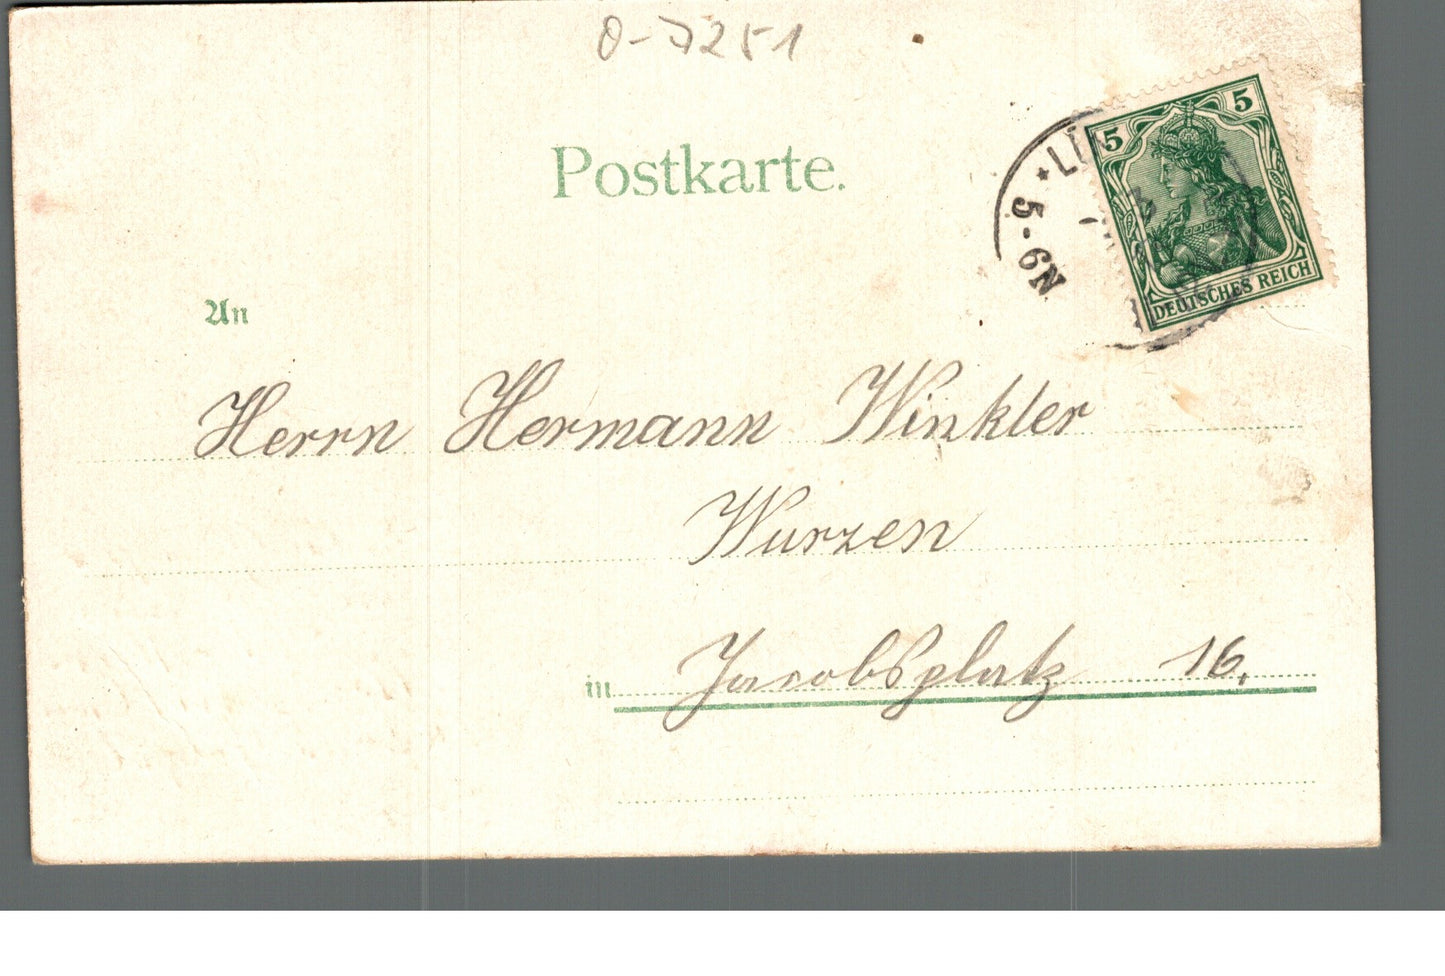 0-7251
Postkarte.
5
5
DEUTSCHES REICH
5-6N
An
Herrn Hermann Winkler
Wurzen
in Jacobsplatz 16.